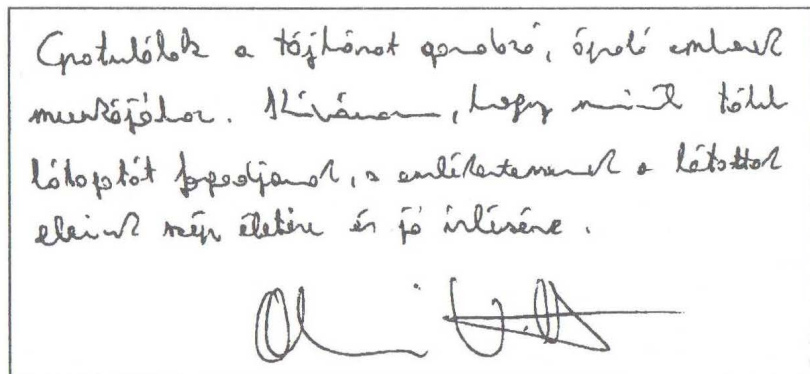 Gratulálok a tájházat gondozó, ápoló emberek
munkájához. Kívánom, hogy minél több
látogatót fogadjanak, s emlékeztessenek a látottak
eleink szép életére és jó ízlésére.